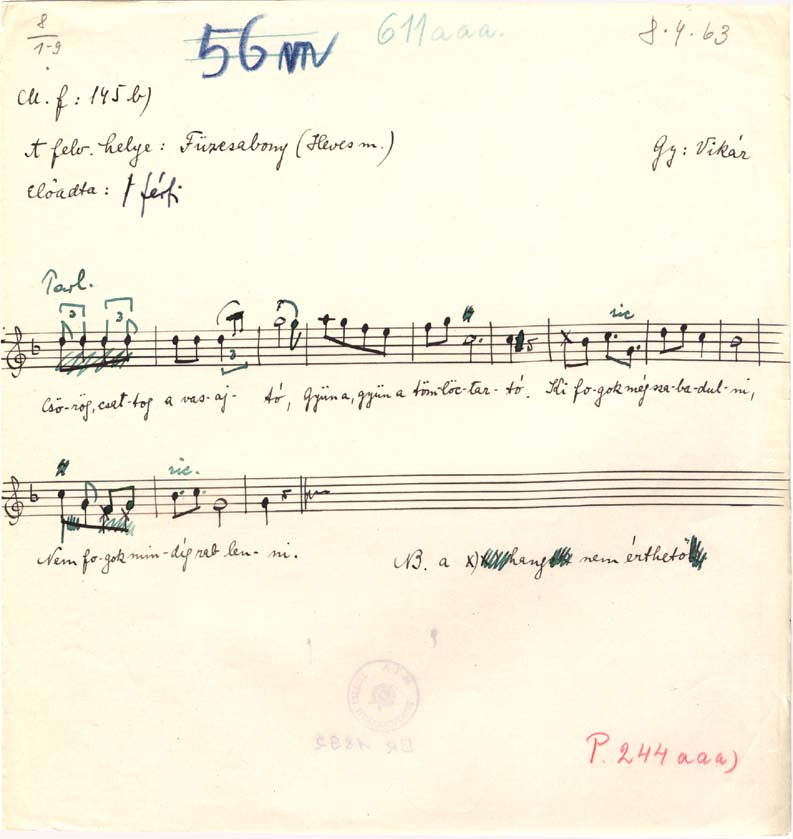 8 56m 611aaa. 8.4.63
1-9
M. f: 145 b)
A felv. helye: Füzesabony (Heves m.) Gy: Vikár
Előadta: 1 férfi
Parl.
3 3 3 sic
Csö-rög, csat-tog a vas-aj- tó, Gyün a, gyün a töm-löc-tar-tó. Ki fo-gok még sza-ba-dul-ni,
sic.
Nem fo-gok min-díg rab len-ni.
NB. a x) hang nem érthető
P. 244 aaa)